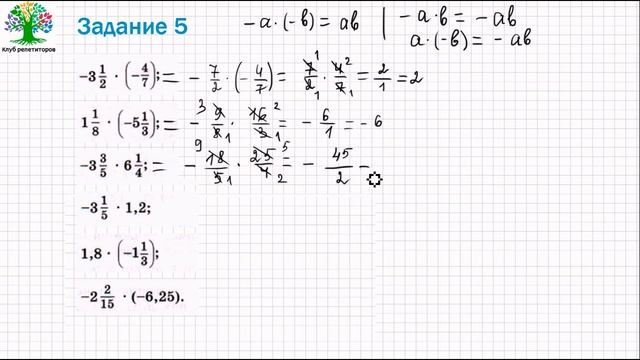 Клуб репетиторов
Задание 5
-a·(-b) = ab | -a·b = -ab
a·(-b) = -ab
-3 1/2 · (-4/7); = -7/2 · (-4/7) = 7/2 · 4/7 = 2/1 = 2
1 1/8 · (-5 1/3); = -9/8 · 16/3 = -6/1 = -6
-3 3/5 · 6 1/4; = -18/5 · 25/4 = -45/2 =
-3 1/5 · 1,2;
1,8 · (-1 1/3);
-2 2/15 · (-6,25).